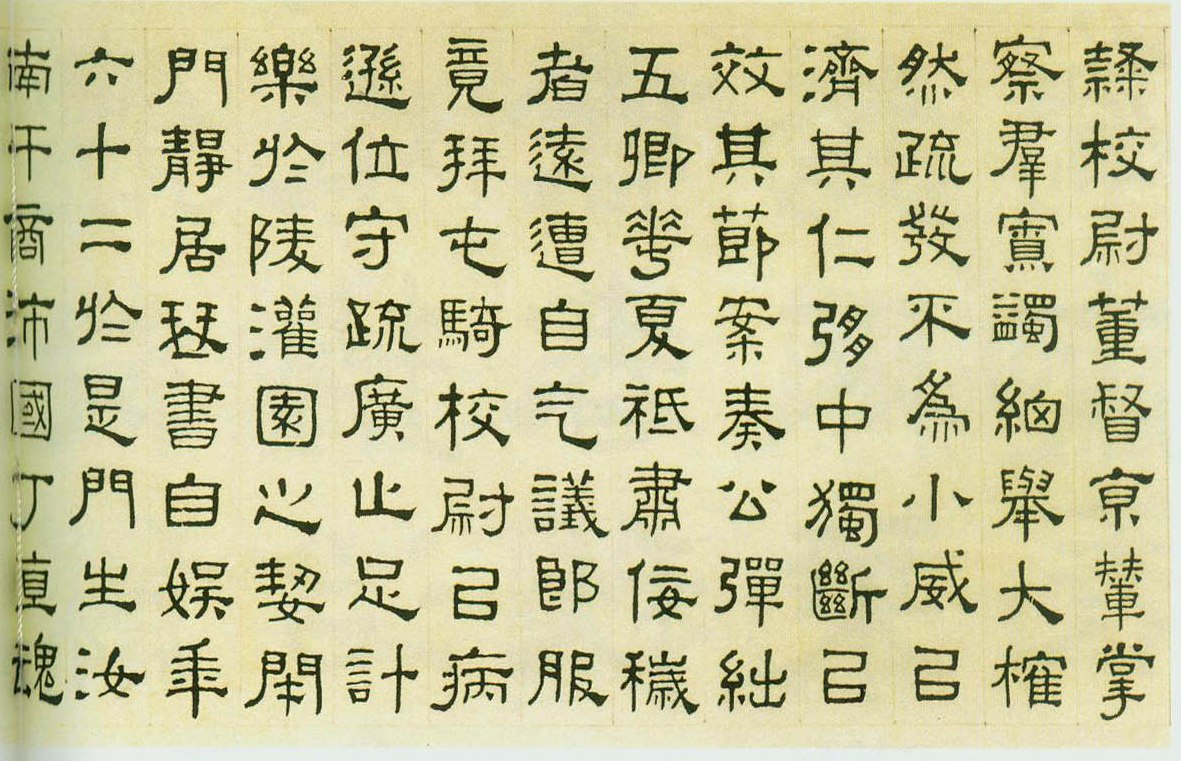 隸校尉董督京輦掌
察羣寮蠲細舉大榷
然疏發不為小威㠯
濟其仁弸中獨斷㠯
效其節案奏公彈絀
五卿華夏祗肅佞穢
者遠遭自乞議郎服
竟拜屯騎校尉㠯病
遜位守疏廣止足計
樂於陵灌園之契閉
門靜居琴書自娛年
六十二於是門生汝
南干商沛國丁直